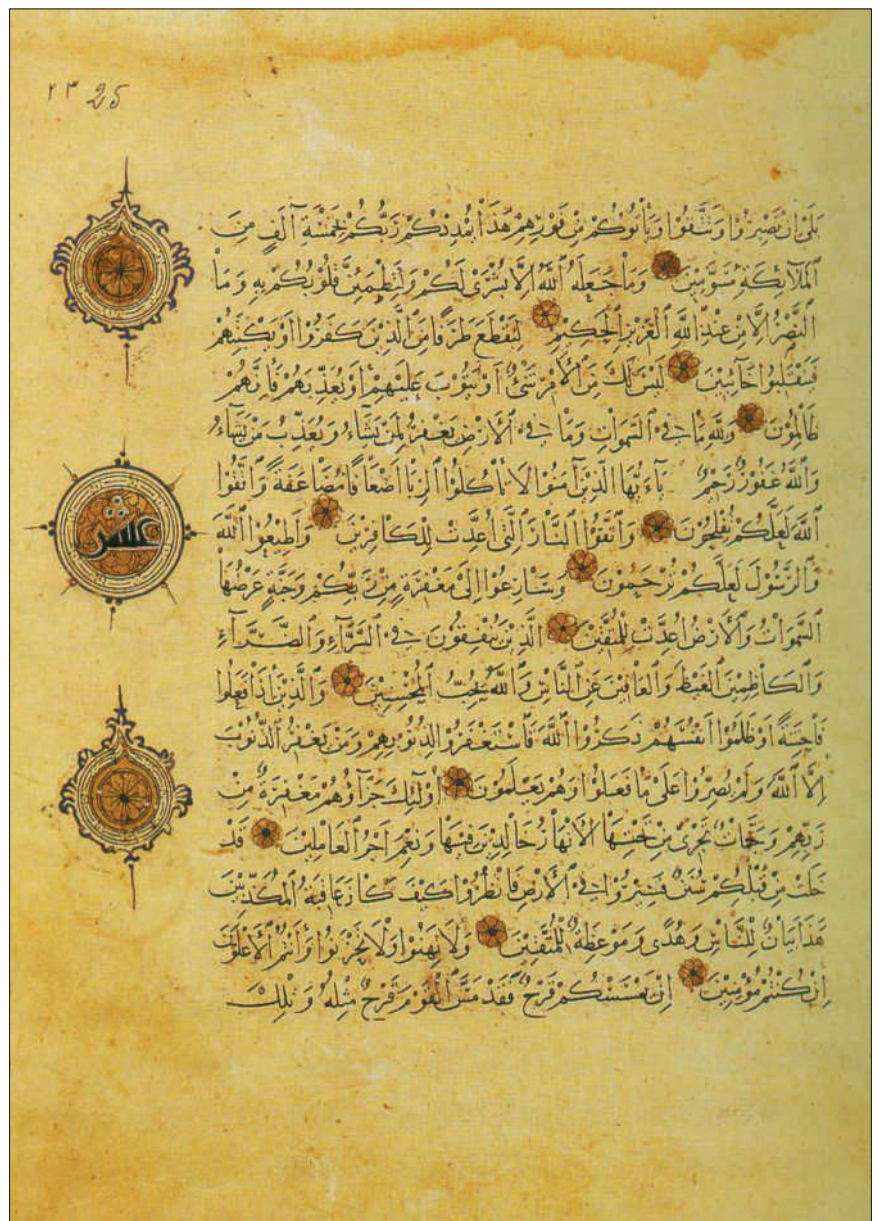 ٢٣ 25
بَلَىٰ إِن تَصْبِرُوا وَتَتَّقُوا وَيَأْتُوكُمْ مِنْ فَوْرِهِمْ هٰذَا يُمْدِدْكُمْ رَبُّكُمْ بِخَمْسَةِ آلَافٍ مِنَ
الْمَلَآئِكَةِ مُسَوِّمِينَ وَمَا جَعَلَهُ اللَّهُ إِلَّا بُشْرَىٰ لَكُمْ وَلِتَطْمَئِنَّ قُلُوبُكُمْ بِهِ وَمَا
النَّصْرُ إِلَّا مِنْ عِنْدِ اللَّهِ الْعَزِيزِ الْحَكِيمِ لِيَقْطَعَ طَرَفًا مِنَ الَّذِينَ كَفَرُوا أَوْ يَكْبِتَهُمْ
فَيَنْقَلِبُوا خَآئِبِينَ لَيْسَ لَكَ مِنَ الْأَمْرِ شَيْءٌ أَوْ يَتُوبَ عَلَيْهِمْ أَوْ يُعَذِّبَهُمْ فَإِنَّهُمْ
ظَالِمُونَ وَلِلَّهِ مَا فِي السَّمَوَاتِ وَمَا فِي الْأَرْضِ يَغْفِرُ لِمَنْ يَشَآءُ وَيُعَذِّبُ مَنْ يَشَآءُ
وَاللَّهُ غَفُورٌ رَحِيمٌ يَآءَيُّهَا الَّذِينَ آمَنُوا لَا تَأْكُلُوا الرِّبَا أَضْعَافًا مُضَاعَفَةً وَاتَّقُوا
اللَّهَ لَعَلَّكُمْ تُفْلِحُونَ وَاتَّقُوا النَّارَ الَّتِي أُعِدَّتْ لِلْكَافِرِينَ وَأَطِيعُوا اللَّهَ
وَالرَّسُولَ لَعَلَّكُمْ تُرْحَمُونَ وَسَارِعُوا إِلَىٰ مَغْفِرَةٍ مِنْ رَبِّكُمْ وَجَنَّةٍ عَرْضُهَا
السَّمَوَاتُ وَالْأَرْضُ أُعِدَّتْ لِلْمُتَّقِينَ الَّذِينَ يُنْفِقُونَ فِي السَّرَّآءِ وَالضَّرَّآءِ
وَالْكَاظِمِينَ الْغَيْظَ وَالْعَافِينَ عَنِ النَّاسِ وَاللَّهُ يُحِبُّ الْمُحْسِنِينَ وَالَّذِينَ إِذَا فَعَلُوا
فَاحِشَةً أَوْ ظَلَمُوا أَنْفُسَهُمْ ذَكَرُوا اللَّهَ فَاسْتَغْفَرُوا لِذُنُوبِهِمْ وَمَنْ يَغْفِرُ الذُّنُوبَ
إِلَّا اللَّهُ وَلَمْ يُصِرُّوا عَلَىٰ مَا فَعَلُوا وَهُمْ يَعْلَمُونَ أُولَئِكَ جَزَآؤُهُمْ مَغْفِرَةٌ مِنْ
رَبِّهِمْ وَجَنَّاتٌ تَجْرِي مِنْ تَحْتِهَا الْأَنْهَارُ خَالِدِينَ فِيهَا وَنِعْمَ أَجْرُ الْعَامِلِينَ قَدْ
خَلَتْ مِنْ قَبْلِكُمْ سُنَنٌ فَسِيرُوا فِي الْأَرْضِ فَانْظُرُوا كَيْفَ كَانَ عَاقِبَةُ الْمُكَذِّبِينَ
هَذَا بَيَانٌ لِلنَّاسِ وَهُدًى وَمَوْعِظَةٌ لِلْمُتَّقِينَ وَلَا تَهِنُوا وَلَا تَحْزَنُوا وَأَنْتُمُ الْأَعْلَوْنَ
إِنْ كُنْتُمْ مُؤْمِنِينَ إِنْ يَمْسَسْكُمْ قَرْحٌ فَقَدْ مَسَّ الْقَوْمَ قَرْحٌ مِثْلُهُ وَتِلْكَ
عشر